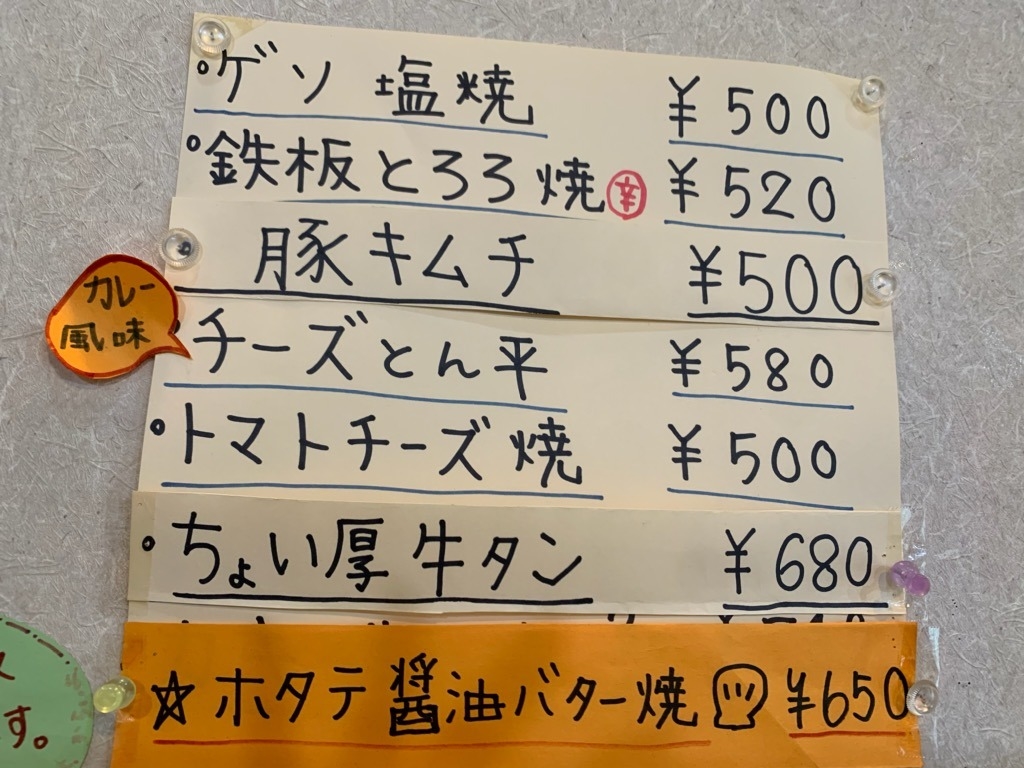 ゲソ 塩焼 ¥500
鉄板とろろ焼 辛 ¥520
豚キムチ ¥500
カレー
風味
チーズとん平 ¥580
トマトチーズ焼 ¥500
ちょい厚牛タン ¥680
☆ホタテ醤油バター焼 ¥650
す。